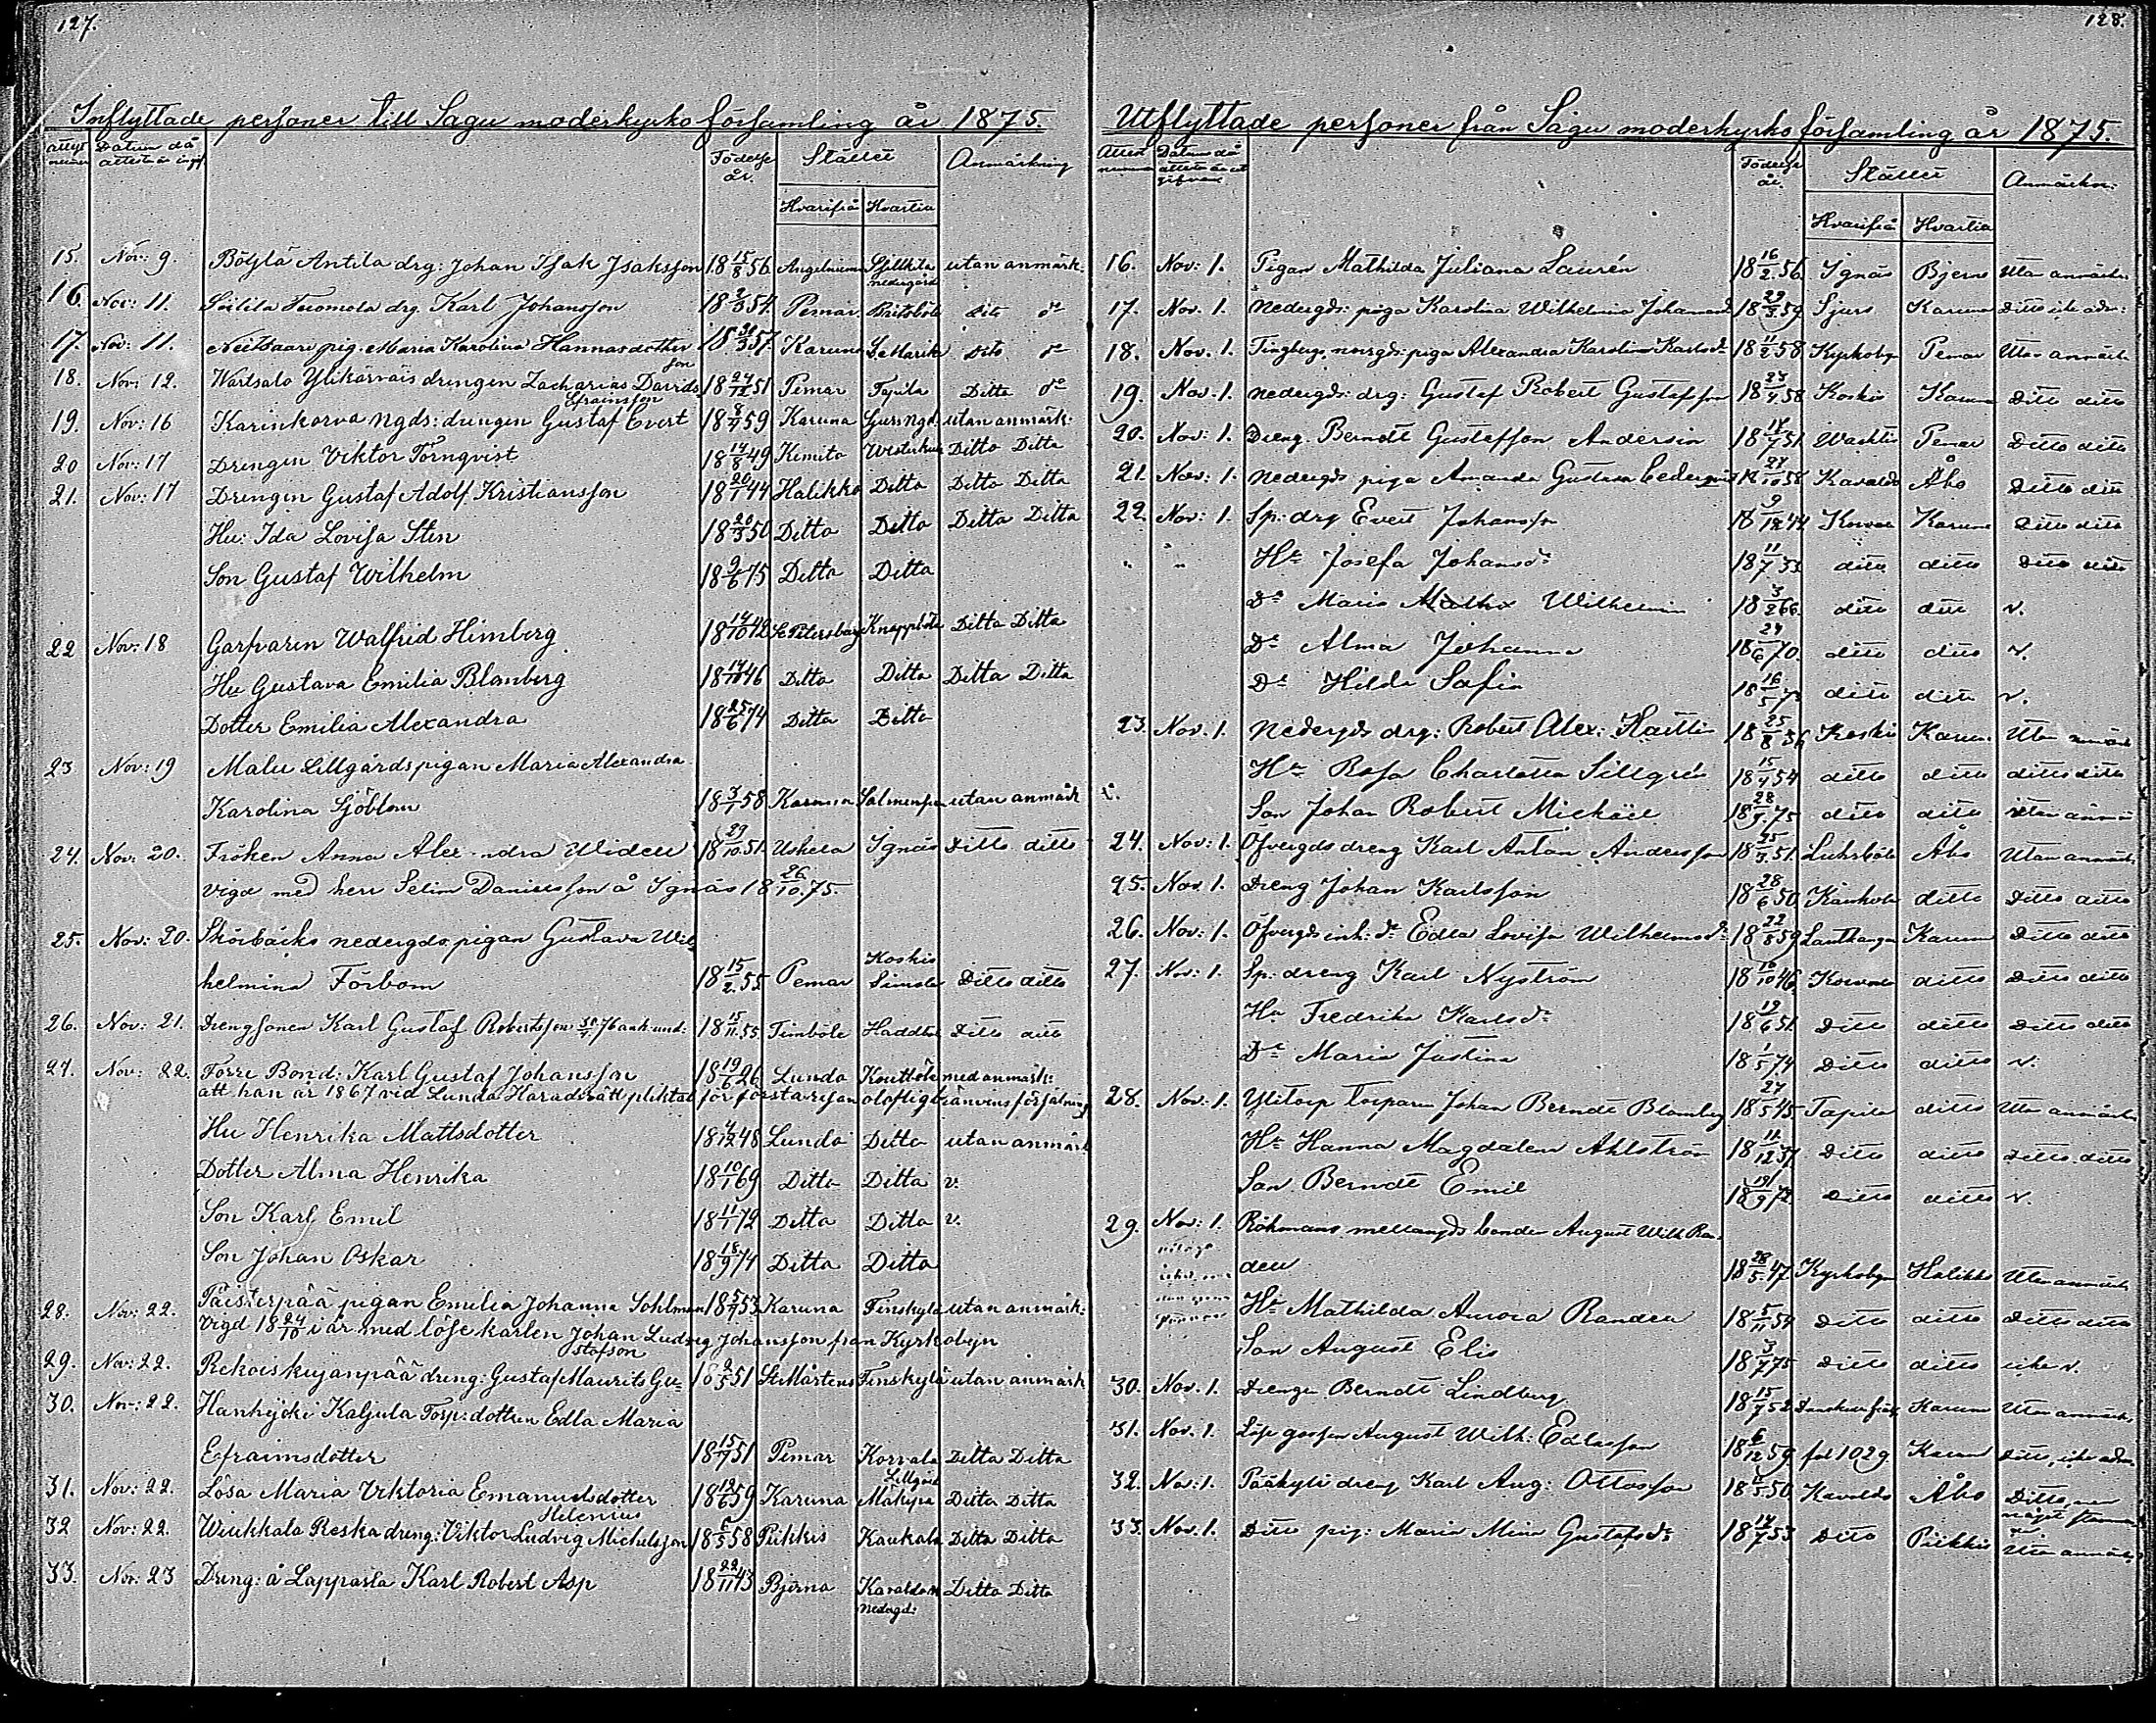 127.
Inflyttade personer till Sagu moderkyrko församling år 1875.
attest nummer Datum då attesten ingif Födelse år. Stället Anmärkning
Hvarifrå Hvartill
15. Nov: 9. Böylä Antila drg: Johan Isak Isaksson 18 15/8 56 Angelniemi Sjellkila nedergård utan anmärk:
16. Nov: 11. Tuomola drg. Karl Johansson 18 2/3 54 Pemar Britsböle dito do
17. Nov: 11. pig. Maria Karolina Hannasdotter 18 30/3 57 Karuna St Marie dito do
18. Nov: 12. Wartsalo Ylikärnäis drengen Zacharias Davidsson 18 24/12 51 Pemar Tapila Ditto do
19. Nov: 16 Karinkorva Ngds: drengen Gustaf Evert Efraimsson 18 8/4 59 Karuna Sjurs Ngd. utan anmärk:
20 Nov: 17 Drengen Viktor Törnqvist 18 14/8 49 Kimito Westerkulla Ditto Ditto
21. Nov: 17 Drengen Gustaf Adolf Kristiansson 18 20/1 44 Halikko Ditto Ditto Ditto
Hu: Ida Lovisa Sten 18 20/3 50 Ditto Ditto Ditto Ditto
Son Gustaf Wilhelm 18 9/6 75 Ditto Ditto
22 Nov: 18 Garfvaren Walfrid Himberg 18 14/10 42 St Petersburg Knappböle Ditto Ditto
Hu Gustava Emilia Blomberg 18 14/10 46 Ditto Ditto Ditto Ditto
Dotter Emilia Alexandra 18 25/6 74 Ditto Ditto
23 Nov: 19 Malu Lillgårds pigan Maria Alexandra
Karolina Sjöblom 18 3/1 58 Karuna utan anmärk
24. Nov: 20. Fröken Anna Alexandra Widell 18 29/10 51 Uskela Sgnäs Ditto ditto
vigd med herr Selim Danielsson å Sgnäs 18 26/10 75.
25. Nov: 20. Skörbäcks nedergds pigan Gustava Wil-
helmina Förbom 18 15/2 55 Pemar Koskis Simola Ditto ditto
26. Nov: 21. Drengsonen Karl Gustaf Robertsson 18 15/11 55 Timböle Haddböle Ditto ditto
27. Nov: 22. Förre Bond: Karl Gustaf Johansson 18 19/6 26 Lundo Knuttböle med anmärk:
att han år 1867 vid Lundo Häradsrätt pliktat för första resan olofligt bränvins försäljning
Hu Henrika Mattsdotter 18 4/12 48 Lundo Ditto utan anmärk
Dotter Alma Henrika 18 10/1 69 Ditto Ditto v.
Son Karl Emil 18 11/1 72 Ditto Ditto v.
Son Johan Oskar 18 18/9 74 Ditto Ditto
28. Nov: 22. Päisterpää pigan Emilia Johanna Sohlman 18 5/7 53 Karuna Finskylä utan anmärk:
Vigd 18 24/10 i år med löse karlen Johan Ludvig Johansson från Kyrkobyn
29. Nov: 22. Rekoiskujanpää dreng: Gustaf Maurits Gustafson 18 2/5 51 St Mårtens Finskylä utan anmärk
30. Nov: 22. Kaljula Torp: dottren Edla Maria
Efraimsdotter 18 15/7 51 Pemar Korvala Ditto Ditto
31. Nov: 22. Lösa Maria Viktoria Emanuelsdotter 18 12/6 59 Karuna Lillgård Mälupa Ditto Ditto
32 Nov: 22. Wiukkala Reska dreng: Viktor Ludvig Michelsson Helenius 18 6/5 58 Piikkis Kaukola Ditto Ditto
33. Nov: 23 Dreng: å Lapparla Karl Robert Asp 18 22/11 43 Bjerna Kavaldo nedergd: Ditto Ditto
128.
Utflyttade personer från Sagu moderkyrko församling år 1875.
Attest nummer Datum då attesten är ut gifven Födelse år. Stället Anmärkn:
Hvarifrå Hvartill
16. Nov: 1. Pigan Mathilda Juliana Laurén 18 16/2 56 Sgnäs Bjerno Utan anmärk:
17. Nov. 1. Nedergds: piga Karolina Wilhelmina Johansd 18 29/3 59 Sjurs Karuna Ditto icke adm:
18. Nov. 1. Tingberga norrgds: piga Alexandra Karolina Karlsdr 18 11/2 58 Kyrkobyn Pemar Utan anmärk
19. Nov. 1. Nedergds: drg: Gustaf Robert Gustafsson 18 23/4 58 Koskis Karuna Ditto ditto
20. Nov: 1. Dreng Berndt Gustafsson Andersin 18 18/7 51 Wachtis Pemar Ditto ditto
21. Nov: 1. Nedergds piga Amanda Gustava Cederqvist 18 27/10 58 Kavaldo Åbo Ditto ditto
22. Nov: 1. Sp: drg Evert Johansson 18 9/12 44 Karuna Ditto ditto
" " Hu Josefa Johansdr 18 11/7 33 ditto ditto Ditto ditto
Dr Maria Wilhelmina 18 3/2 66 ditto ditto v.
Dr Alma Johanna 18 24/6 70. ditto ditto v.
Dr Hilda Sofia 18 16/5 73 ditto ditto v.
23. Nov. 1. Nedergds drg: Robert Alex: Hartlin 18 25/8 56 Koskis Karuna Utan anmärk
Hu Rosa Charlotta Sillgrén 18 15/4 54 ditto ditto ditto ditto
Son Johan Robert Mickäel 18 28/9 75 ditto ditto utan anmärk
24. Nov: 1. Öfvergds dreng Karl Anton Andersson 18 25/3 51 Lukrböle Åbo Utan anmärk
25. Nov. 1. Dreng Johan Karlsson 18 28/6 50 Kaukola ditto Ditto ditto
26. Nov: 1. Öfvergds inh: dr Edla Lovisa Wilhelmsdr 18 22/8 59 Lautkangas Karuna Ditto ditto
27. Nov: 1. Sp: dreng Karl Nyström 18 10/10 46 ditto Ditto ditto
Hu Fredrika Karlsdr 18 12/6 51 Ditto ditto Ditto ditto
Dr Maria Justina 18 1/5 74 Ditto ditto v.
28. Nov: 1. Ylitorp torparen Johan Berndt Blomberg 18 27/5 45 Tapila ditto Utan anmärk
Hu Hanna Magdalena Ahlström 18 11/12 37 Ditto ditto Ditto ditto
Son Berndt Emil 18 19/9 72 Ditto ditto v.
29. Nov: 1. Röhmans mellangds bonde August Wilh Ran-
den 18 28/5 47 Kyrkobyn Halikko Utan anmärk
Hu Mathilda Aurora Randen 18 5/11 54 Ditto ditto Ditto ditto
Son August Elis 18 3/7 75 Ditto ditto icke v.
30. Nov. 1. Drengen Berndt Lindberg 18 15/7 52 Karuna Utan anmärk
31. Nov. 1. Löse gossen August Wilh: Edlasson 18 6/12 59 fol 1029 Karuna Ditto, icke adm.
32. Nov: 1. Pääkylä dreng Karl Aug: Ottosson 18 11/5 50 Kavaldo Åbo Ditto
33. Nov. 1. Ditto pig: Maria Mina Gustafsdr 18 14/7 53 Ditto Piikkis Utan anmärk